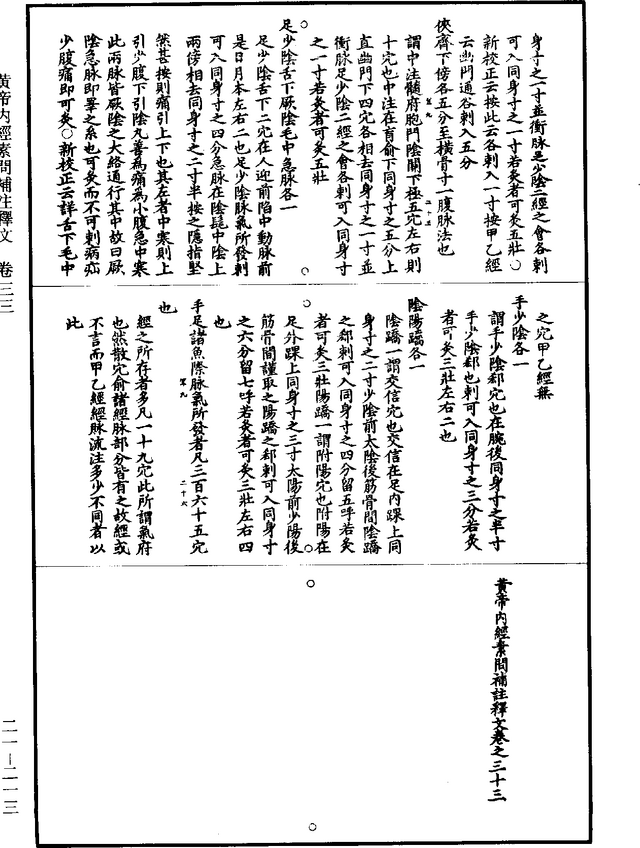 身寸之一寸並衝脉足少陰二經之會各刺
可入同身寸之一寸若灸者可灸五壯○
新校正云按此云各刺入一寸按甲乙經
云幽門通谷刺入五分
俠齊下傍各五分至橫骨寸一腹脉法也
謂中注髓府胞門陰關下極五穴左右則
十穴也中注在肓俞下同身寸之五分上
直幽門下四穴各相去同身寸之一寸並
衝脉足少陰二經之會各刺可入同身寸
之一寸若灸者可灸五壯
足少陰舌下厥陰毛中急脉各一
足少陰舌下二穴在人迎前陷中動脉前
是日月本左右二也足少陰脉氣所發刺
可入同身寸之四分急脉在陰髦中陰上
兩傍相去同身寸之二寸半按之隱指堅
然甚按則痛引上下也其左者中寒則上
引少腹下引陰丸善為痛為小腹急中寒
此兩脉皆厥陰之大絡通行其中故曰厥
陰急脉即睪之系也可灸而不可刺病疝
少腹痛即可灸○新校正云詳舌下毛中
之穴甲乙經無
手少陰各一
謂手少陰郄穴也在腕後同身寸之半寸
手少陰郄也刺可入同身寸之三分若灸
者可灸三壯左右二也
陰陽蹻各一
陰蹻一謂交信穴也交信在足內踝上同
身寸之二寸少陰前太陰後筋骨間陰蹻
之郄刺可入同身寸之四分留五呼若灸
者可灸三壯陽蹻一謂附陽穴也附陽在
足外踝上同身寸之三寸太陽前少陽後
筋骨間謹取之陽蹻之郄刺可入同身寸
之六分留七呼若灸者可灸三壯左右四
也
手足諸魚際脉氣所發者凡三百六十五穴
也
經之所存者多凡一十九穴此所謂氣府
也然散穴俞諸經脉部分皆有之故經或
不言而甲乙經經脉流注多少不同者以
此
黃帝內經素問補註釋文卷之三十三
黃帝內經素問補注釋文 卷三三
二一—二一三